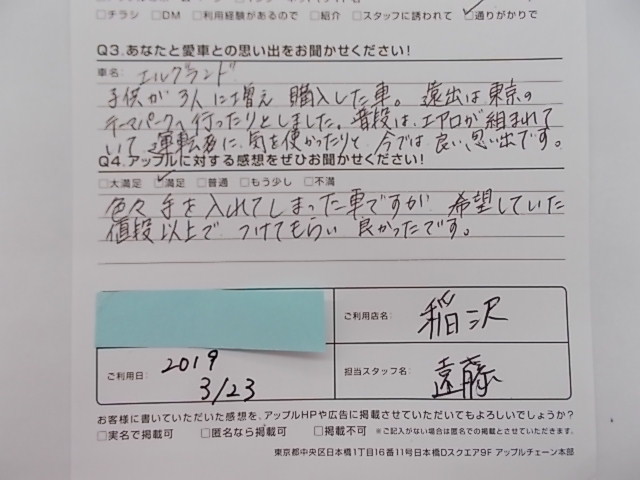 □チラシ □DM □利用経験があるので □紹介 □スタッフに誘われて ☑通りがかりで
Q3.あなたと愛車との思い出をお聞かせください!
車名: エルグランド
子供が3人に増え 購入した車。遠出は東京の
テーマパークへ行ったりとしました。普段は、エアロが組まれて
いて 運転者に、気を使かったりと 今では 良い思い出です。
Q4.アップルに対する感想をぜひお聞かせください!
□大満足 ☑満足 □普通 □もう少し □不満
色々 手を入れてしまった車ですが 希望していた
値段以上で つけてもらい 良かったです。
ご利用店名: 稲沢
ご利用日: 2019 3/23
担当スタッフ名: 遠藤
お客様に書いていただいた感想を、アップルHPや広告に掲載させていただいてもよろしいでしょうか?
□実名で掲載可 □匿名なら掲載可 □掲載不可 ※ご記入がない場合は匿名での掲載とさせていただきます。
東京都中央区日本橋1丁目16番11号日本橋Dスクエア9F アップルチェーン本部